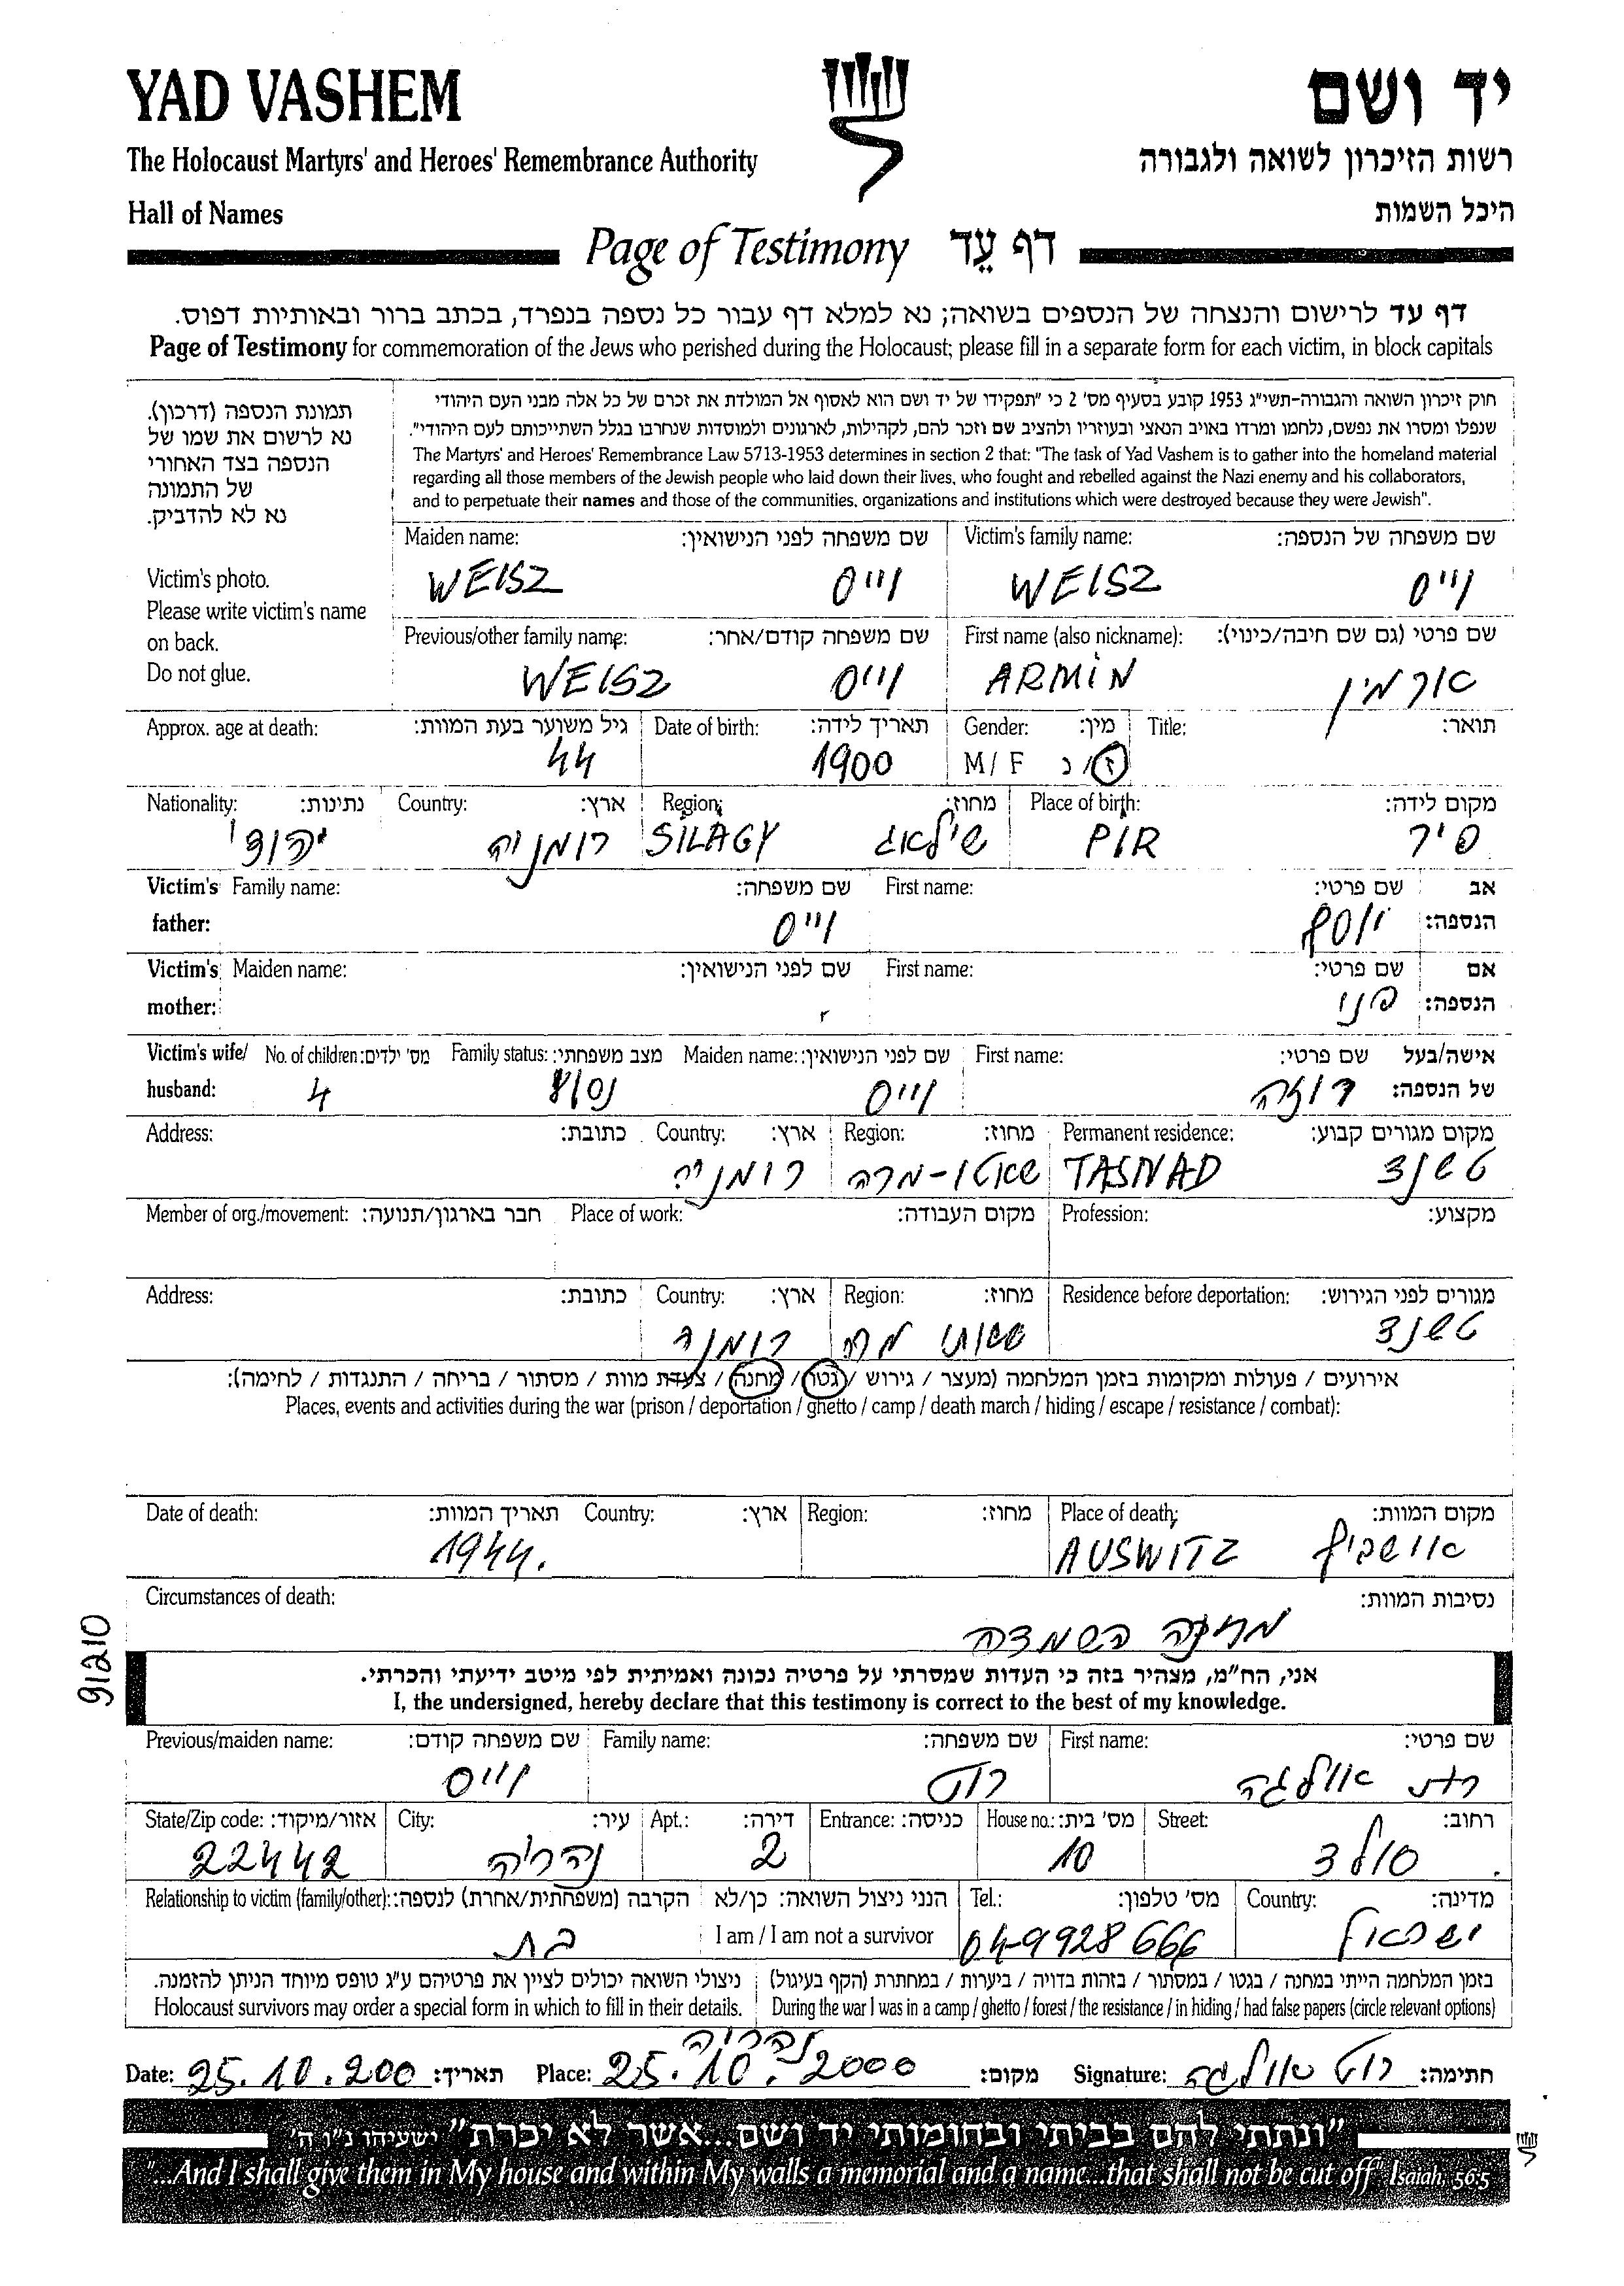 YAD VASHEM יד ושם
The Holocaust Martyrs' and Heroes' Remembrance Authority רשות הזיכרון לשואה ולגבורה
Hall of Names היכל השמות
Page of Testimony דף עֵד
דף עד לרישום והנצחה של הנספים בשואה; נא למלא דף עבור כל נספה בנפרד, בכתב ברור ובאותיות דפוס.
Page of Testimony for commemoration of the Jews who perished during the Holocaust; please fill in a separate form for each victim, in block capitals
תמונת הנספה (דרכון).
נא לרשום את שמו של
הנספה בצד האחורי
של התמונה
נא לא להדביק.
Victim's photo.
Please write victim's name
on back.
Do not glue.
חוק זיכרון השואה והגבורה-תשי"ג 1953 קובע בסעיף מס' 2 כי "תפקידו של יד ושם הוא לאסוף אל המולדת את זכרם של כל אלה מבני העם היהודי
שנפלו ומסרו את נפשם, נלחמו ומרדו באויב הנאצי ובעוזריו ולהציב שם וזכר להם, לקהילות, לארגונים ולמוסדות שנחרבו בגלל השתייכותם לעם היהודי".
The Martyrs' and Heroes' Remembrance Law 5713-1953 determines in section 2 that: "The task of Yad Vashem is to gather into the homeland material
regarding all those members of the Jewish people who laid down their lives, who fought and rebelled against the Nazi enemy and his collaborators,
and to perpetuate their names and those of the communities, organizations and institutions which were destroyed because they were Jewish".
Maiden name: שם משפחה לפני הנישואין: Victim's family name: שם משפחה של הנספה:
WEISZ ווייס WEISZ ווייס
Previous/other family name: שם משפחה קודם/אחר: First name (also nickname): שם פרטי (גם שם חיבה/כינוי):
WEISZ ווייס ARMIN ארמין
Approx. age at death: גיל משוער בעת המוות: Date of birth: תאריך לידה: Gender: מין: Title: תואר:
44 1900 M / F ז/נ
Nationality: נתינות: Country: ארץ: Region: מחוז: Place of birth: מקום לידה:
יהודי רומניה SILAGY שילאג PIR פיר
Victim's Family name: שם משפחה: First name: שם פרטי: אב
father: ווייס יוסף הנספה:
Victim's Maiden name: שם לפני הנישואין: First name: שם פרטי: אם
mother: פני הנספה:
Victim's wife/ No. of children: מס' ילדים: Family status: מצב משפחתי: Maiden name: שם לפני הנישואין: First name: שם פרטי: אישה/בעל
husband: 4 נסוי ווייס רוזה של הנספה:
Address: כתובת: Country: ארץ: Region: מחוז: Permanent residence: מקום מגורים קבוע:
רומניה שאטו-מרה TASNAD טשנד
Member of org./movement: חבר בארגון/תנועה: Place of work: מקום העבודה: Profession: מקצוע:
Address: כתובת: Country: ארץ: Region: מחוז: Residence before deportation: מגורים לפני הגירוש:
טשנד
אירועים / פעולות ומקומות בזמן המלחמה (מעצר / גירוש / גטו / מחנה / צעדת מוות / מסתור / בריחה / התנגדות / לחימה):
Places, events and activities during the war (prison / deportation / ghetto / camp / death march / hiding / escape / resistance / combat):
Date of death: תאריך המוות: Country: ארץ: Region: מחוז: Place of death: מקום המוות:
1944. AUSWITZ אוושביץ
Circumstances of death: נסיבות המוות:
מחנה השמדה
91210
אני, הח"מ, מצהיר בזה כי העדות שמסרתי על פרטיה נכונה ואמיתית לפי מיטב ידיעתי והכרתי.
I, the undersigned, hereby declare that this testimony is correct to the best of my knowledge.
Previous/maiden name: שם משפחה קודם: Family name: שם משפחה: First name: שם פרטי:
ווייס רוט רות אולגה
State/Zip code: אזור/מיקוד: City: עיר: Apt.: דירה: Entrance: כניסה: House no.: מס' בית: Street: רחוב:
22442 נהריה 2 10 סולד
Relationship to victim (family/other): הקרבה (משפחתית/אחרת) לנספה: הנני ניצול השואה: כן/לא Tel.: מס' טלפון: Country: מדינה:
בת I am / I am not a survivor 04-9928666 ישראל
ניצולי השואה יכולים לציין את פרטיהם ע"ג טופס מיוחד הניתן להזמנה. בזמן המלחמה הייתי במחנה / בגטו / במסתור / בזהות בדויה / ביערות / במחתרת (הקף בעיגול)
Holocaust survivors may order a special form in which to fill in their details. During the war I was in a camp / ghetto / forest / the resistance / in hiding / had false papers (circle relevant options)
נהריה
Date: 25.10.200 תאריך: Place: 25.10.2000 מקום: Signature: רוט אולגה חתימה:
"ונתתי להם בביתי ובחומותי יד ושם...אשר לא יכרת" ישעיהו נ"ו ה'
"...And I shall give them in My house and within My walls a memorial and a name...that shall not be cut off" Isaiah, 56:5